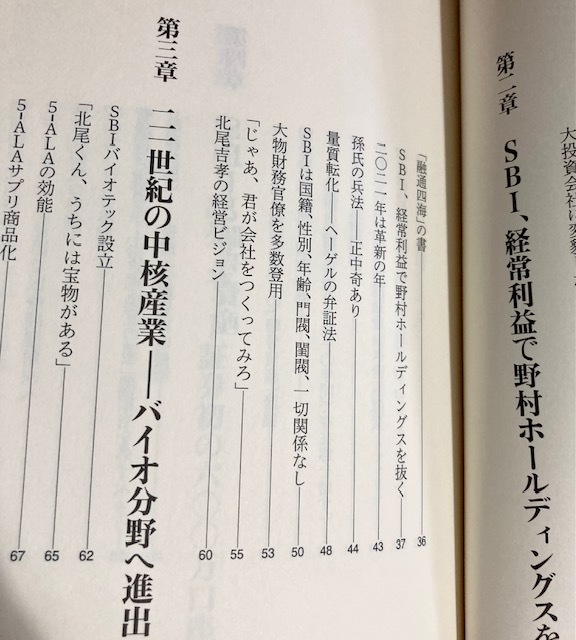 大投資会社に変貌
第二章　SBI、経常利益で野村ホールディングスを
「融通四海」の書 36
SBI、経常利益で野村ホールディングスを抜く 37
二〇二一年は革新の年 43
孫氏の兵法——正中奇あり 44
量質転化——ヘーゲルの弁証法 48
SBIは国籍、性別、年齢、門閥、閨閥、一切関係なし 50
大物財務官僚を多数登用 53
「じゃあ、君が会社をつくってみろ」 55
北尾吉孝の経営ビジョン 60
第三章　二一世紀の中核産業——バイオ分野へ進出
SBIバイオテック設立 62
「北尾くん、うちには宝物がある」 65
5-ALAの効能 67
5-ALAサプリ商品化